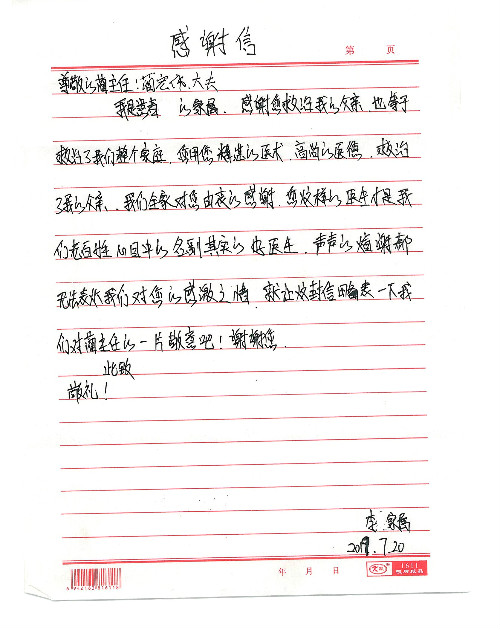 感谢信
第 页
尊敬的蔺主任：蔺宏伟大夫
我是患者 的家属，感谢您救治我的父亲，也等于
救治了我们整个家庭，您用您精湛的医术，高尚的医德，救治
了我的父亲，我们全家对您由衷的感谢，您这样的医生才是我
们老百姓心目中的名副其实的好医生，声声的道谢都
无法表达我们对您的感激之情，就让这封信代表一下我
们对蔺主任的一片敬意吧！谢谢您
此致
敬礼！
李 家属
2019.7.20
年 月 日
1611